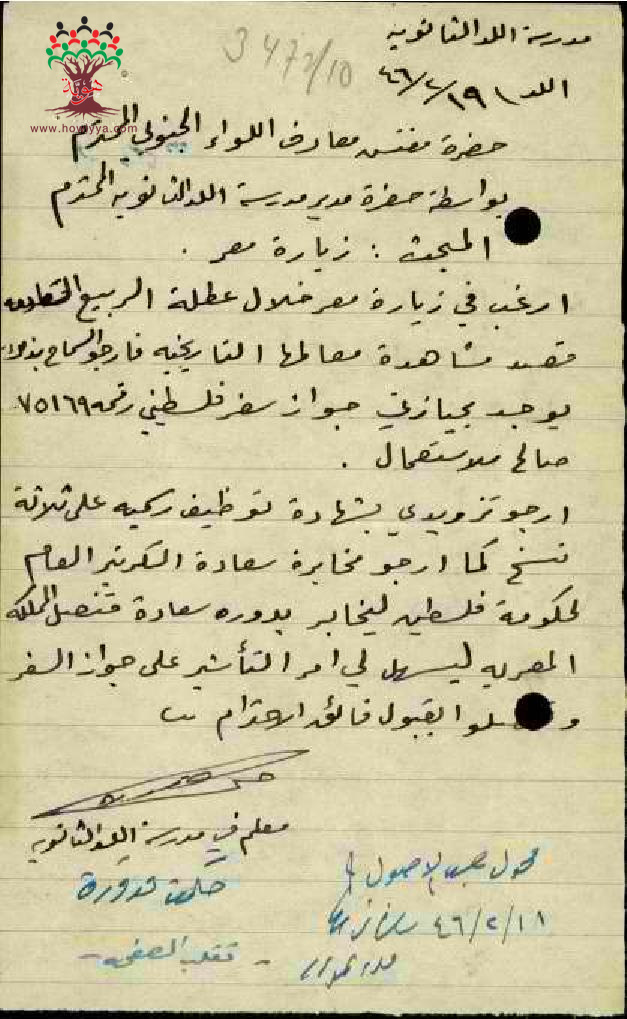 3472/10
مدرسة اللد الثانويه
اللد ١٩/٢/٤٦
هوية
www.howiyya.com
حضرة مفتش معارف اللواء الجنوبي المحترم
بواسطة حضرة مدير مدرسة اللد الثانويه المحترم
المبحث : زيارة مصر .
ارغب في زيارة مصر خلال عطلة الربيع القادمه
بقصد مشاهدة معالمها التاريخيه فارجو السماح بذلك
يوجد بحيازتي جواز سفر فلسطيني رقمه ٧٥١٦٩
صالح للاستعمال .
ارجو تزويدي بشهادة توظيف رسميه على ثلاثة
نسخ كما ارجو مخابرة سعادة السكرتير العام
لحكومة فلسطين ليخابر بدوره سعادة قنصل المملكه
المصريه ليسهل لي امر التأشير على جواز السفر
وتفضلوا بقبول فائق الاحترام
معلم في مدرسة اللد الثانويه
حكمت
محول حسب الاصول
٤٦/٢/١٨
- تقلب الصفحه -